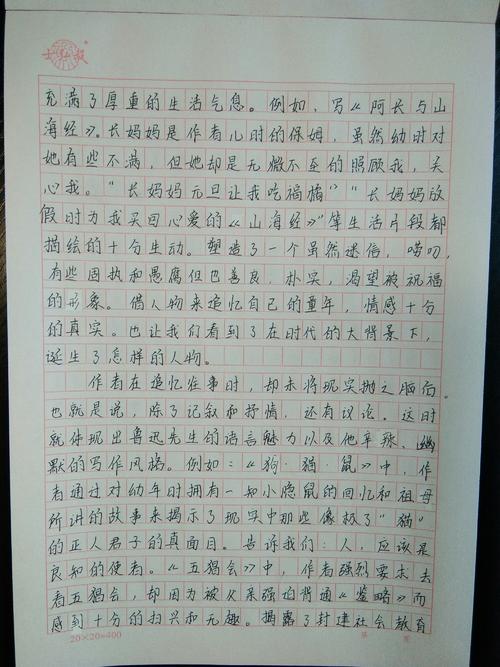 充满了厚重的生活气息。例如,写《阿长与山
海经》。长妈妈是作者儿时的保姆,虽然幼时对
她有些不满,但她却是无微不至的照顾我,关
心我。"长妈妈元旦让我吃福橘""长妈妈放
假时为我买回心爱的《山海经》"等生活片段都
描绘的十分生动。塑造了一个虽然迷信,唠叨,
有些固执和愚腐但也善良,朴实,渴望被祝福
的形象。借人物来追忆自己的童年,情感十分
的真实。也让我们看到了在时代的大背景下,
诞生了怎样的人物。
作者在追忆往事时,却未将现实抛之脑后
也就是说,除了记叙和抒情,还有议论。这时
就体现出鲁迅先生的语言魅力以及他辛辣、幽
默的写作风格。例如:《狗·猫·鼠》中,作
者通过对幼年时拥有一只小隐鼠的回忆和祖母
所讲的故事来揭示了现实中那些像极了"猫"
的正人君子的真面目。告诉我们:人,应该是
良知的使者。《五猖会》中,作者强烈要求去
看五猖会,却因为被父亲强迫背诵《鉴略》而
感到十分的扫兴和无趣。揭露了封建社会教育
20×20=400